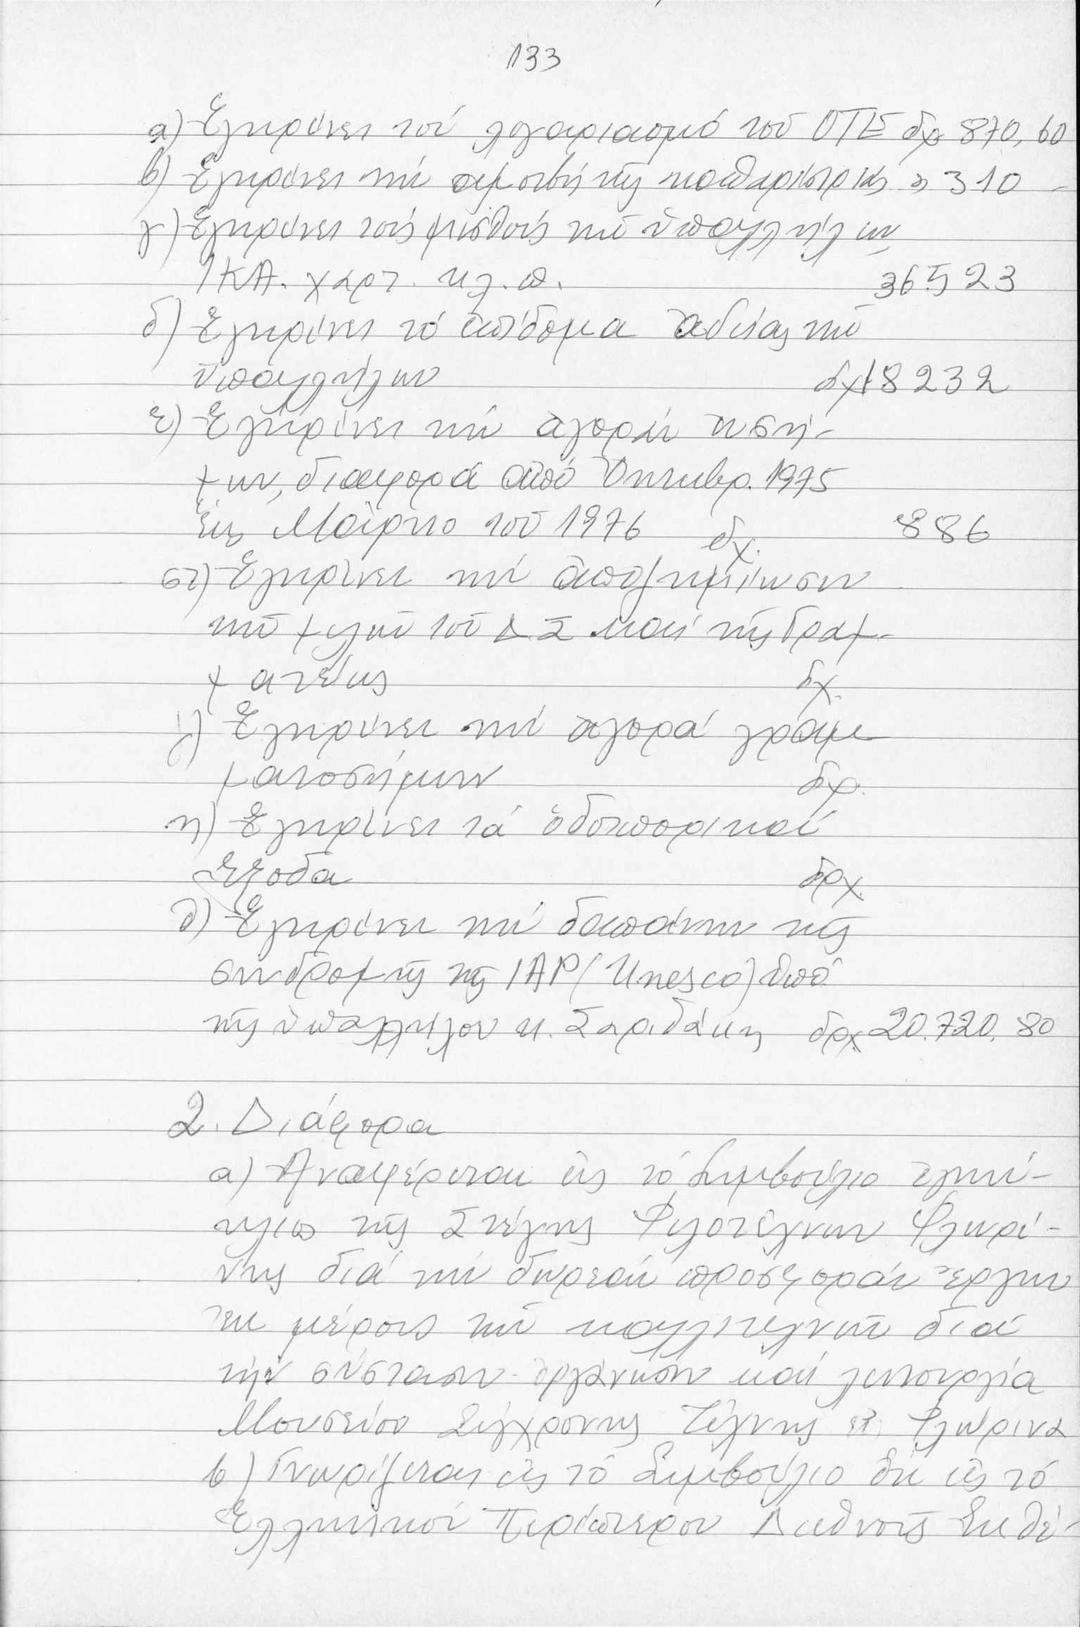 133
α) Ἐγκρίνει τόν λογαριασμό τοῦ ΟΤΕ δρχ 870,60
β) Ἐγκρίνει τήν ἀμοιβή τῆς καθαρίστριας » 310 -
γ) Ἐγκρίνει τούς μισθούς τῶν ὑπαλλήλων
ΙΚΑ. χαρτ. κλ.π. 36523
δ) Ἐγκρίνει τό ἐπίδομα ἀδείας τῶν
ὑπαλλήλων δχ 18232
ε) Ἐγκρίνει τήν ἀγοράν ἐνσή-
μων, διαφορά ἀπό Ὀκτωβρ. 1975
εἰς Μάρτιο τοῦ 1976 δχ. 886
στ) Ἐγκρίνει τήν ἀποζημίωσιν
τῶν μελῶν τοῦ ΔΣ καί τῆς Γραμ-
ματέως δχ.
ζ) Ἐγκρίνει τήν ἀγορά γραμ
ματοσήμων δρχ.
η) Ἐγκρίνει τά ὁδοιπορικά
ἔξοδα δρχ.
θ) Ἐγκρίνει τήν δαπάνην τῆς
συνδρομῆς τῆς ΙΑΡ (Unesco) ὑπό
τῆς ὑπαλλήλου κ. Σαριδάκη δρχ 20.720,80
2. Διάφορα
α) Ἀναφέρεται εἰς τό Συμβούλιο
τῆς Στέγης Φιλοτέχνων Φλωρί-
νης διά τήν δωρεάν προσφοράν ἔργων
ἐκ μέρους τῶν καλλιτεχνῶν διά
τήν σύστασιν ὀργάνωσιν καί λειτουργία
Μουσείου Σύγχρονης Τέχνης Φλώρινα
β) Γνωρίζεται εἰς τό Συμβούλιο ὅτι εἰς τό
Ἑλληνικόν Περίπτερον Διεθνοῦς Ἐκθέ-